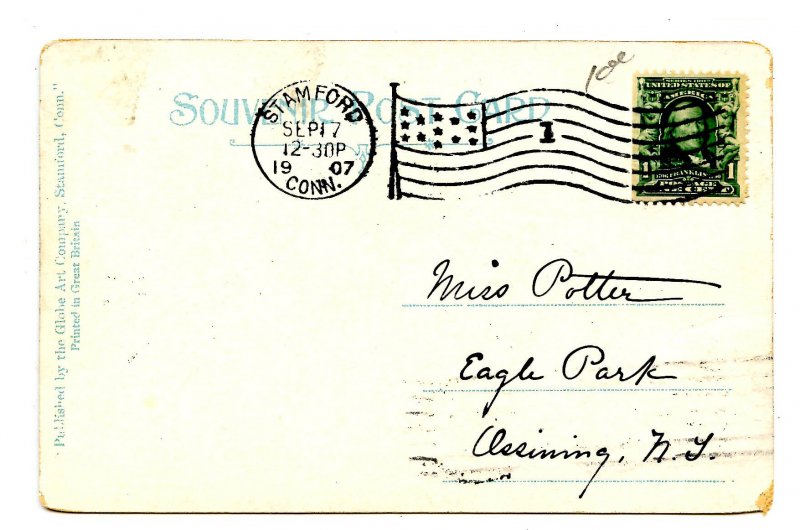 SOUVENIR POST CARD
STAMFORD
SEP 17
12-30P
1907
CONN.
1
SERIES 1902
UNITED STATES OF
AMERICA
1 FRANKLIN 1
POSTAGE
Miss Potter
Eagle Park
Ossining, N.Y.
Published by the Globe Art Company, Stamford, Conn."
Printed in Great Britain